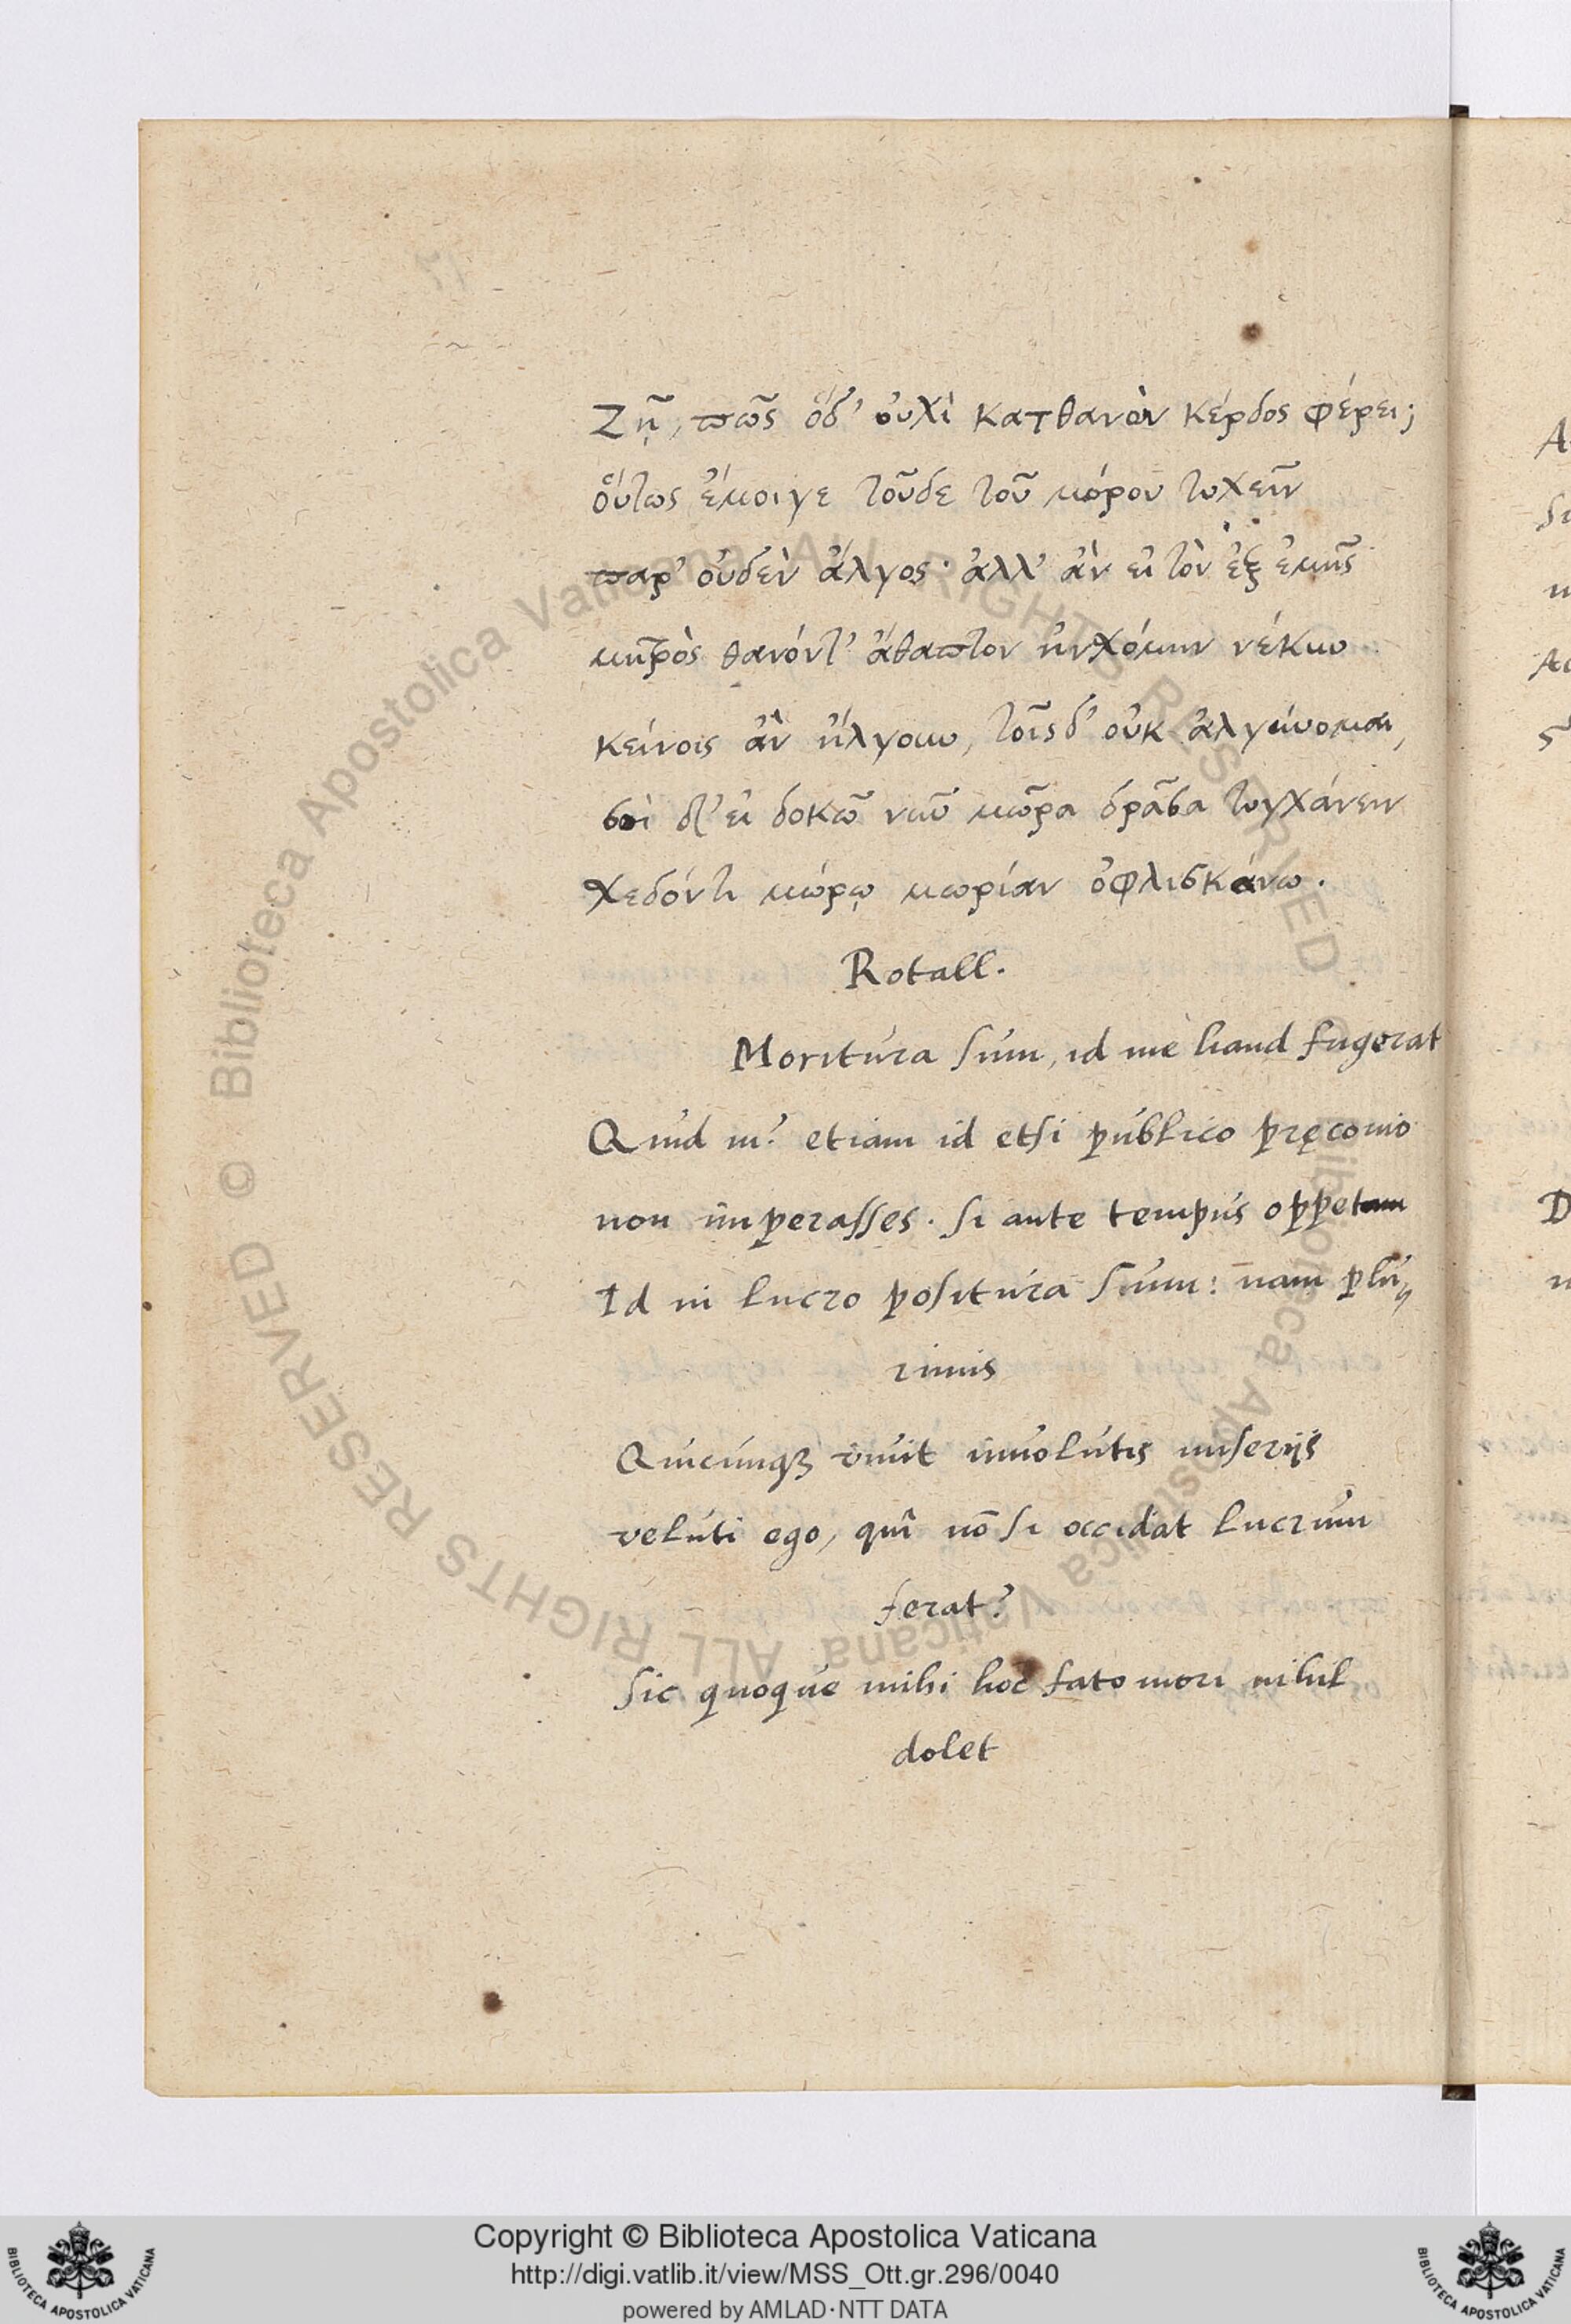 Ζῇ, πῶς ὅδ’ οὐχὶ κατθανὼν κέρδος φέρει;
οὕτως ἔμοιγε τοῦδε τοῦ μόρου τυχεῖν
παρ’ οὐδὲν ἄλγος· ἀλλ’ ἂν εἰ τὸν ἐξ ἐμῆς
μητρὸς θανόντ’ ἄθαπτον ἠνχόμην νέκυν
κείνοις ἂν ἤλγουν, τοῖς δ’ οὐκ ἀλγύνομαι,
σοὶ δ’ εἰ δοκῶ νῦν μῶρα δρᾶσα τυγχάνειν
χεδόν τι μώρῳ μωρίαν ὀφλισκάνω.
Rotall.
Moritura sum, id me haud fugerat
Quid ni? etiam id etsi publico pręconio
non imperasses. Si ante tempus oppetam
Id in lucro positura sum: nam plu„
rimis
Quicunqꝫ vivit involutis miserijs
veluti ego, quî nõ si occidat lucrum
ferat?
Sic quoque mihi hoc fato mori nihil
dolet
Copyright © Biblioteca Apostolica Vaticana
http://digi.vatlib.it/view/MSS_Ott.gr.296/0040
powered by AMLAD·NTT DATA